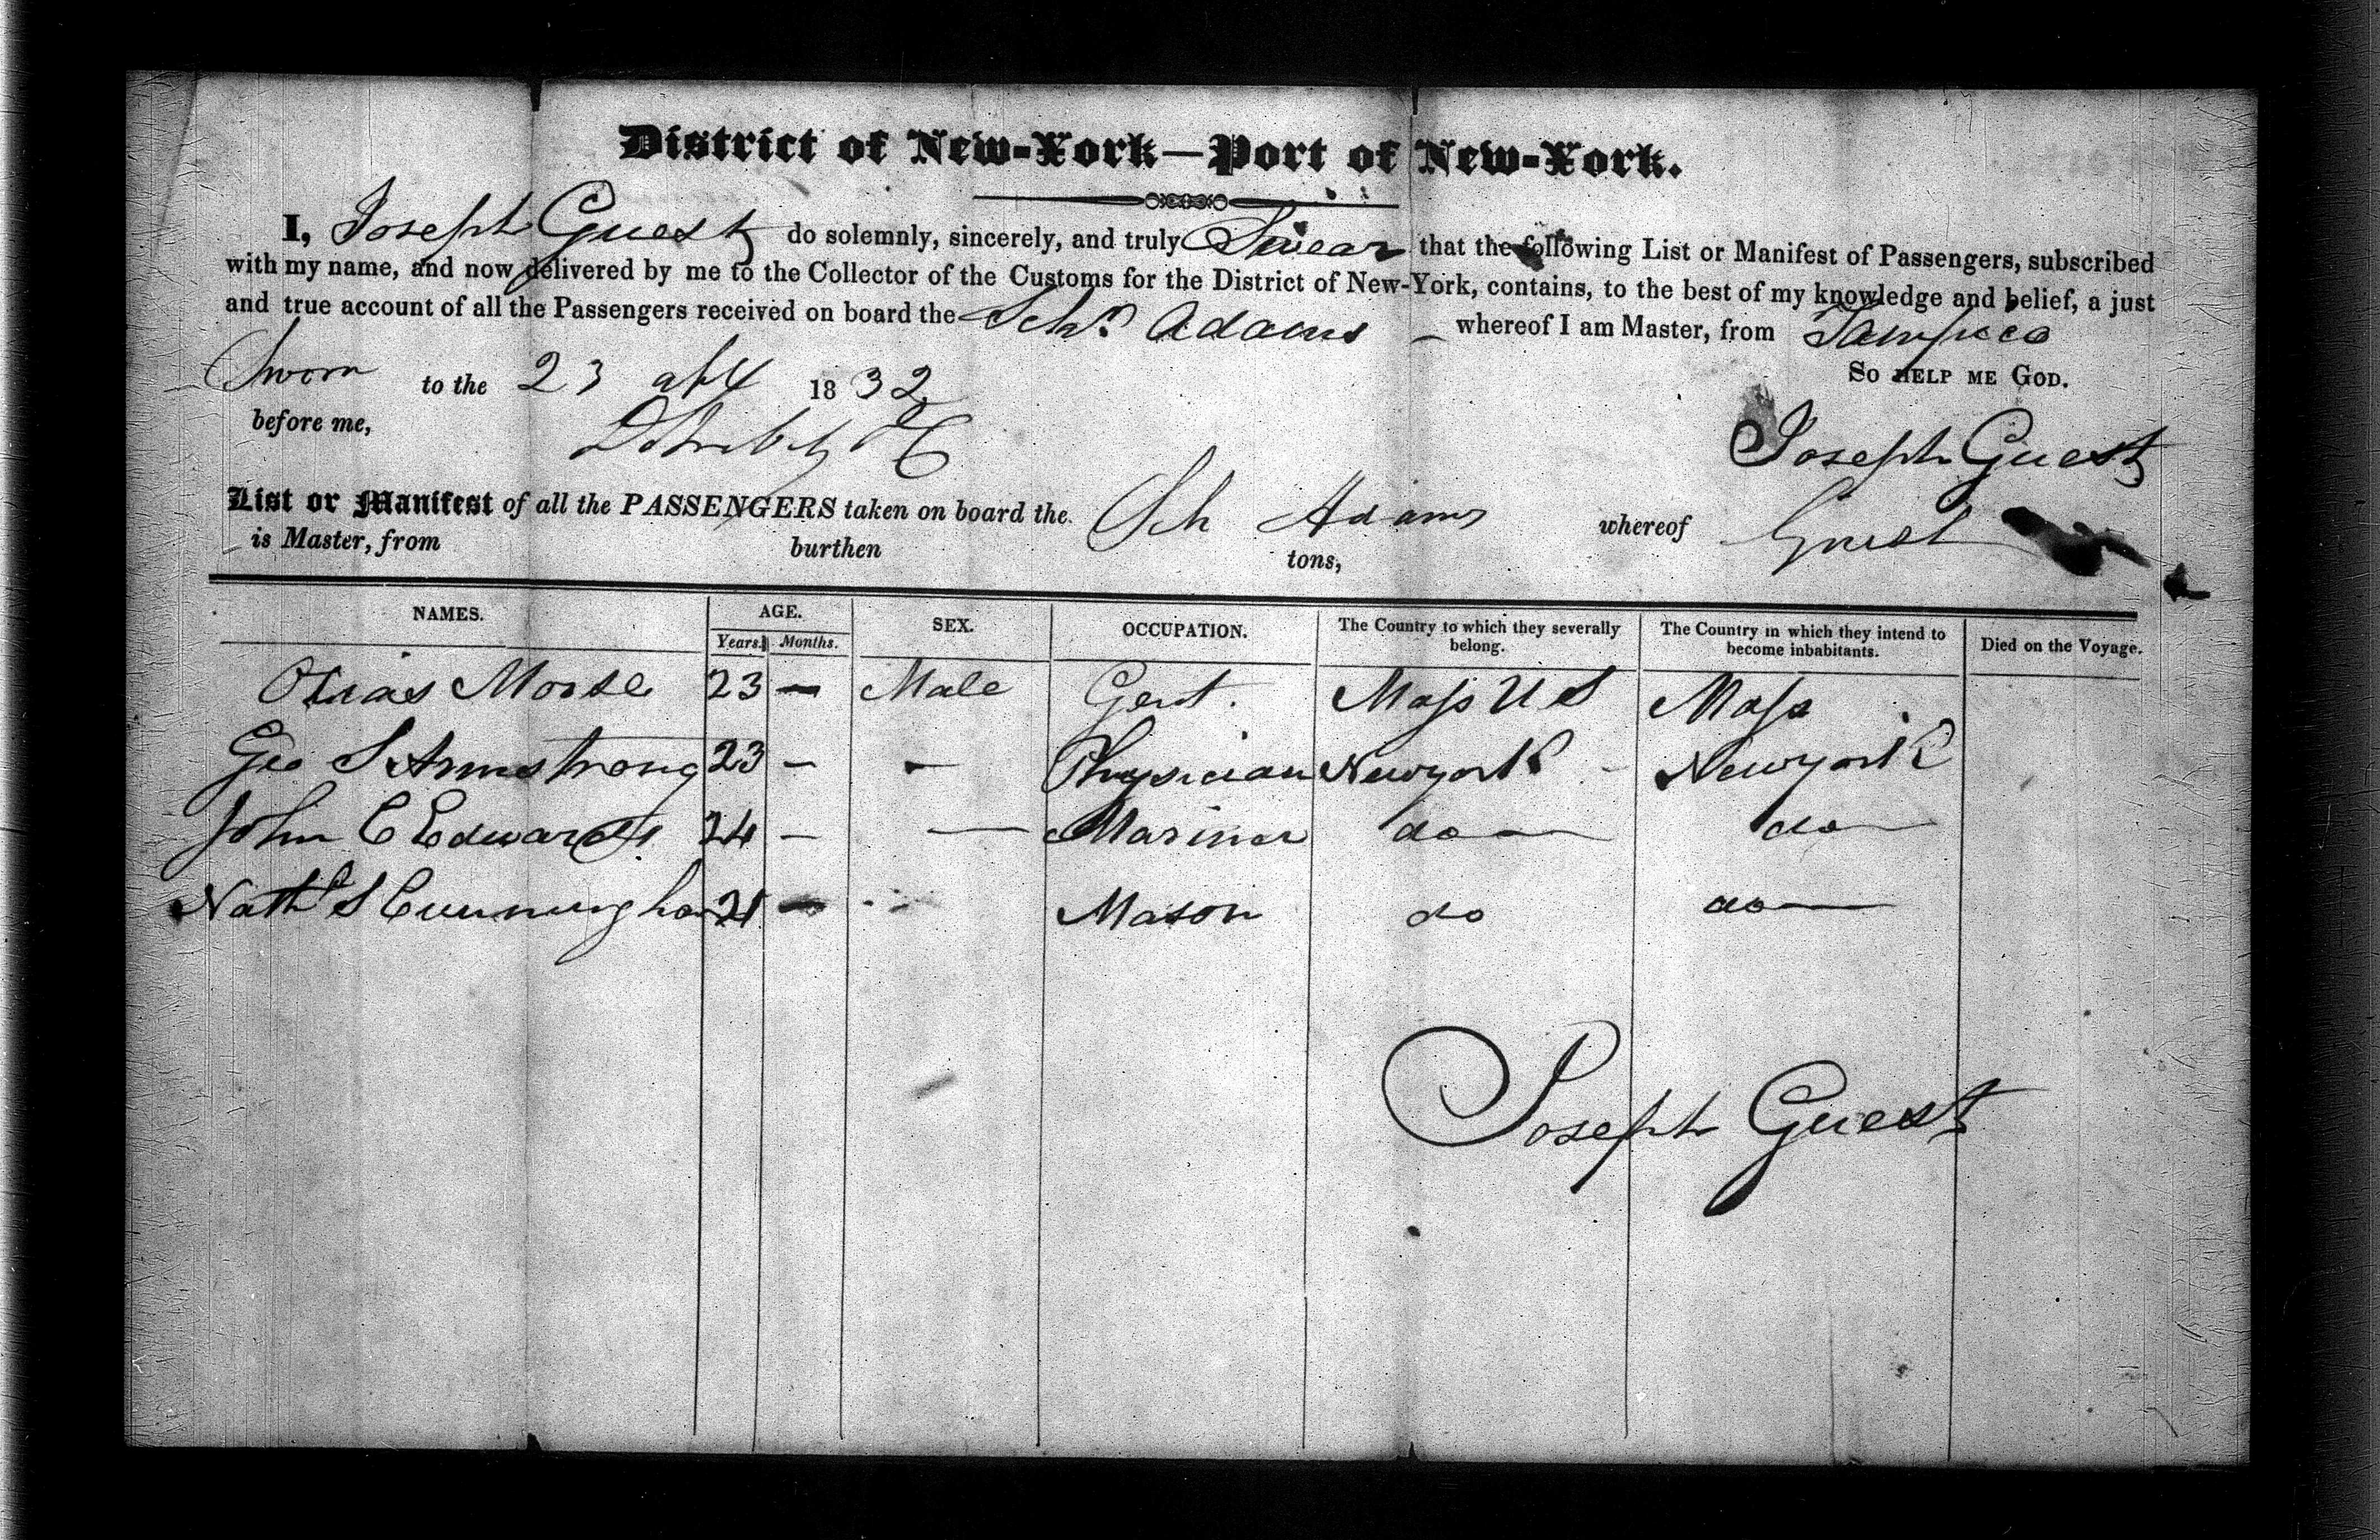 District of New-York—Port of New-York.
I, Joseph Guest do solemnly, sincerely, and truly Swear that the following List or Manifest of Passengers, subscribed
with my name, and now delivered by me to the Collector of the Customs for the District of New-York, contains, to the best of my knowledge and belief, a just
and true account of all the Passengers received on board the Schr Adams whereof I am Master, from Tampico
Sworn to the 23 apl 1832 So HELP ME GOD.
before me,
Joseph Guest
List or Manifest of all the PASSENGERS taken on board the Sch Adams whereof Guest
is Master, from burthen tons,
NAMES. AGE. SEX. OCCUPATION. The Country to which they severally belong. The Country in which they intend to become inhabitants. Died on the Voyage.
Years. Months.
Morse 23 — Male Gent. Mass U S Mass
Geo S Armstrong 23 — — Physician Newyork - Newyork
John C Edwards 24 — — Mariner do — do —
Nathl S Cunningham 21 — Mason do do —
Joseph Guest